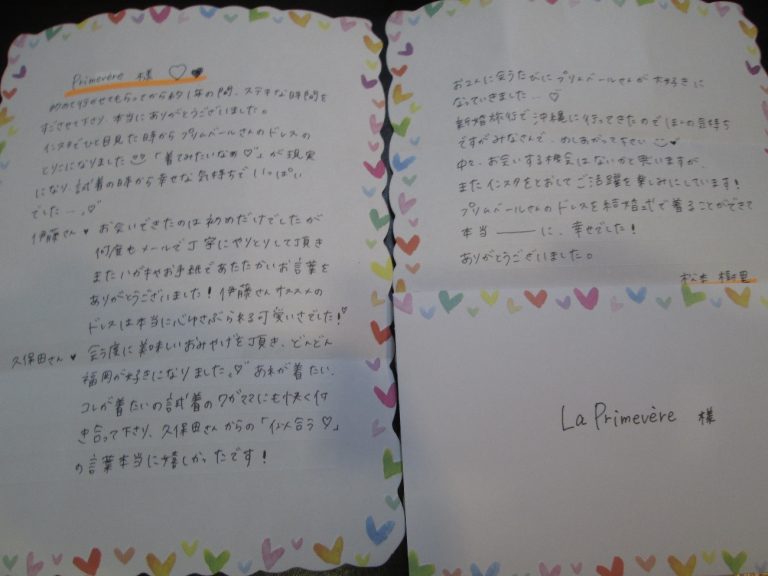 Primevère 様 ♡♥
初めて行かせてもらってから約1年の間、ステキな時間を
すごさせて下さり、本当にありがとうございました。
インスタでひと目見た時からプリムベールさんのドレスの
とりこになりました 「着てみたいなぁ♡」が現実
になり、試着の時から幸せな気持ちでいっぱい
でした…♡
伊藤さん ♥ お会いできたのは初めだけでしたが
何度もメールで丁寧にやりとりして頂き
またいがきやお手紙であたたかいお言葉を
ありがとうございました！伊藤さんオススメの
ドレスは本当に心ゆさぶられる可愛いさでした！♡
久保田さん ♥ 会う度に美味しいおみやげを頂き、どんどん
福岡が好きになりました♡ あれが着たい、
コレが着たいの試着のワガママにも快く付
き合って下さり、久保田さんからの「似合う♡」
の言葉本当に嬉しかったです！
お2人に会うたびにプリムベールさんが大好きに
なっていきました…♡
新婚旅行で沖縄に行ってきたのでほんの気持ち
ですがみなさんで、めしあがって下さい ♥
中々、お会いする機会はないかと思いますが、
またインスタをとおしてご活躍を楽しみにしています！
プリムベールさんのドレスを結婚式で着ることができて
本当―――に、幸せでした！
ありがとうございました。
松本 樹里
La Primevère 様